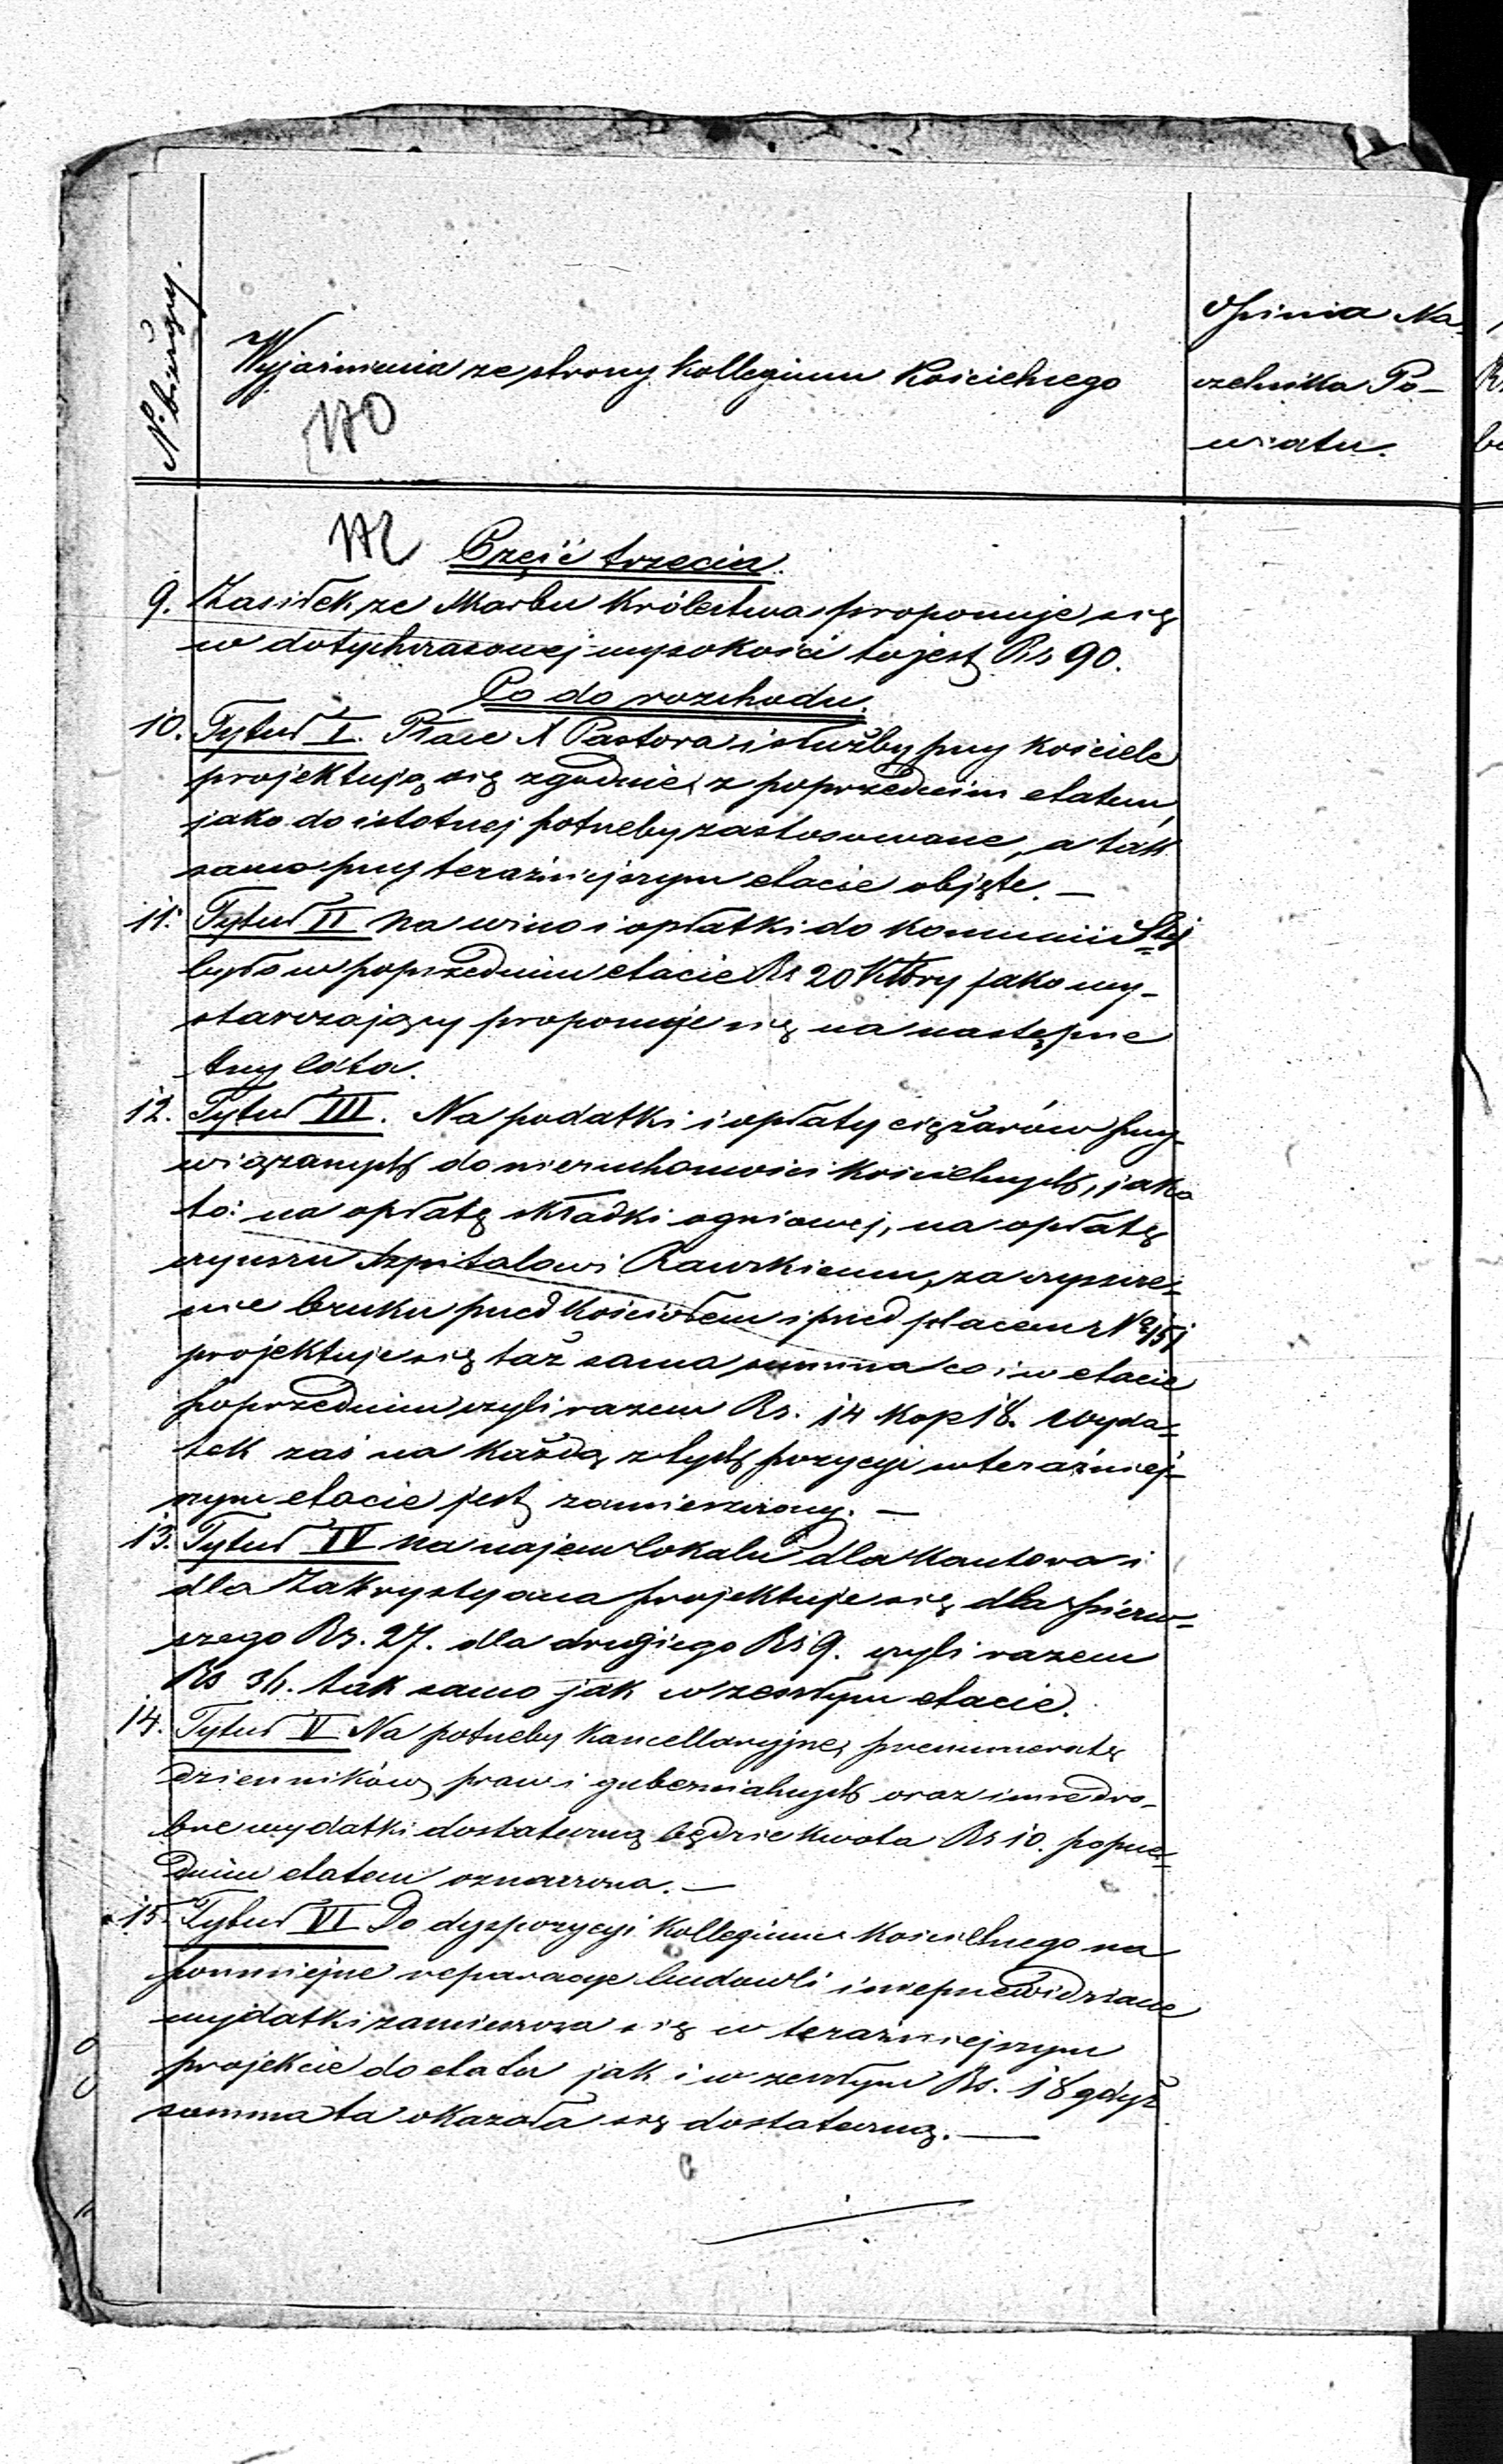 N. bieżący.
Wyjaśnienia ze strony Kollegium Kościelnego
Opinia Na-
czelnika Po-
wiatu.
170
172
Część trzecia.
9. Zasiłek ze Skarbu Królestwa proponuje się
w dotychczasowej wysokości to jest Rs 90.
Co do rozchodu.
10. Tytuł I. Płace X Pastora i służby przy Kościele
projektują się zgodnie z poprzednim etatem,
jako do istotnej potrzeby zastosowane, a tak
samo przy teraźniejszym etacie objęte. —
11. Tytuł II Na wino i opłatki do Komunii Stej
było w poprzednim etacie Rs 20 który jako wy-
starczający proponuje się na następne
trzy lata.
12. Tytuł III. Na podatki i opłaty ciężarów przy-
wiązanych do nieruchomości Kościelnych, jako
to: na opłatę składki ogniowej, na opłatę
czynszu Szpitalowi Rawskiemu, za czyszcze-
nie bruku przed Kościołem i przed placem No 151
projektuje się taż sama summa co i w etacie
poprzednim czyli razem Rs. 14 kop 18. Wyda-
tek zaś na każdą z tych pozycyi w teraźniej-
szym etacie jest zamieszczony. —
13. Tytuł IV Na najem lokalu dla Kantora i
dla Zakrystyana projektuje się dla pierw-
szego Rs. 27. dla drugiego Rs 9. czyli razem
Rs 36. tak samo jak w zeszłym etacie.
14. Tytuł V Na potrzeby Kancellaryjne, prenumeratę
Dzienników praw i gubernialnych oraz inne dro-
bne wydatki dostateczną będzie kwota Rs 10. poprze-
dnim etatem oznaczona. —
15. Tytuł VI Do dyspozycyi Kollegium Kościelnego na
pomniejsze reparacye budowli i nieprzewidziane
wydatki zamieszcza się w teraźniejszym
projekcie do etatu jak i w zeszłym Rs. 18 gdyż
summa ta okazała się dostateczną. —